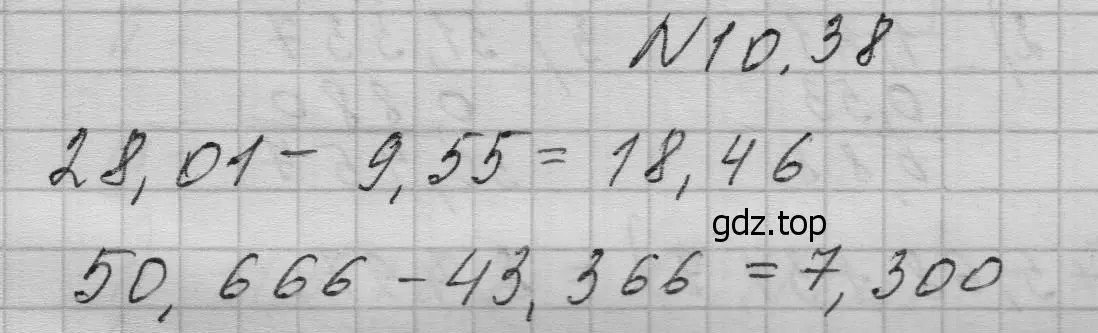 N10.38
28,01 - 9,55 = 18,46
gdz.top
50,666 - 43,366 = 7,300